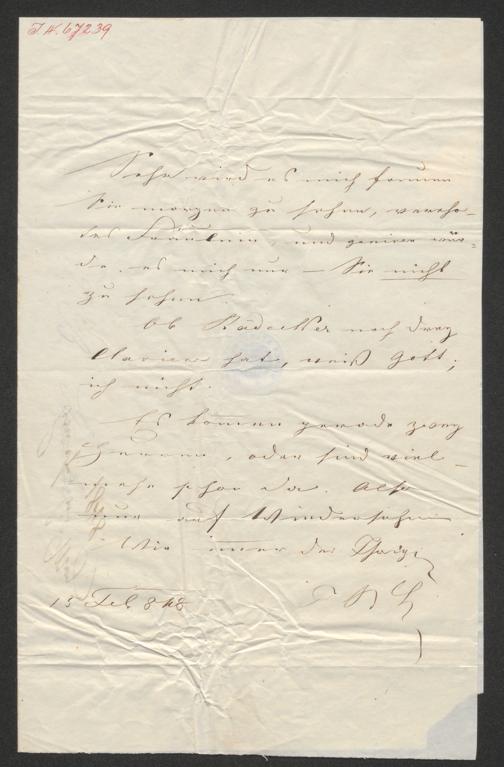 I.N. 67239
Sehr wird es mich freuen
Sie morgen zu sehen, verehr-
tes Fräulein und geniren wür=
de es mich nur — Sie nicht
zu sehen.
Ob noch drey
Claviere hat, weiß Gott;
ich nicht.
Es kommen gerade zwey
Herren, oder sind viel-
mehr schon da. Also
nur auf Wiedersehen
Wie immer der
15 Feb 848